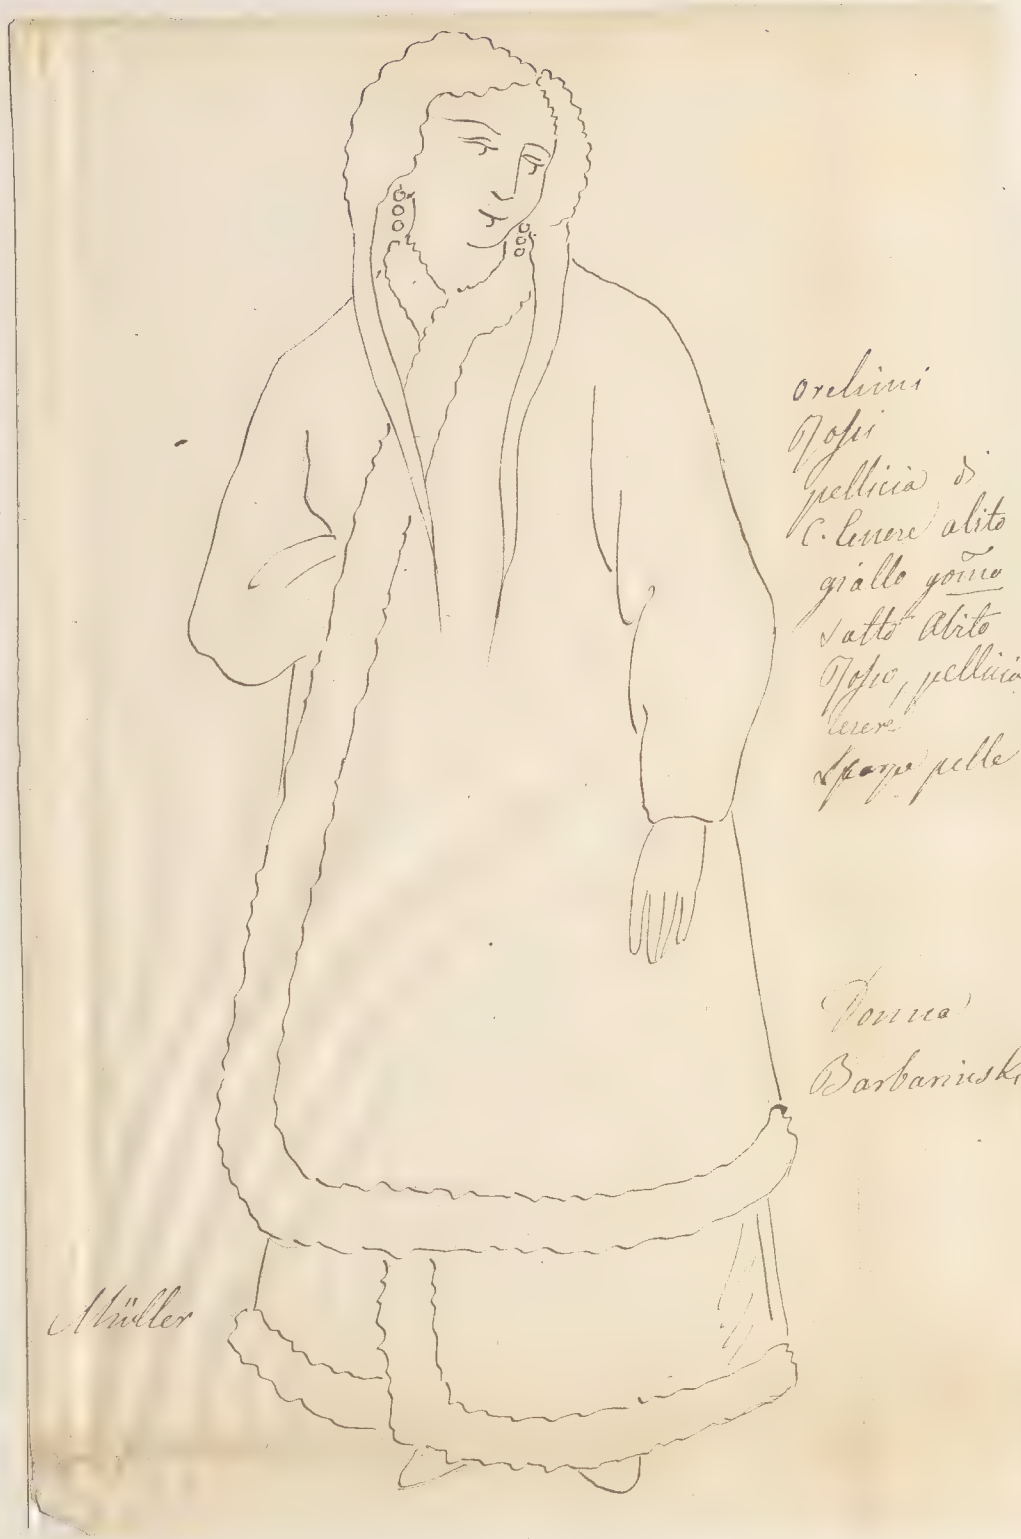 orelini
Rossi
pellicia di
C. lenere abito
giallo gom̃a
sotto Abito
Rosso, pellicia
lenere
Scarpe pelle
Donna
Barbarinski
Müller